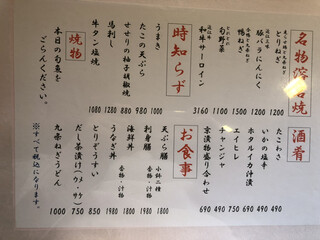 名物 溶岩焼
とりねぎ 1200
豚バラにんにく 1200
鴨ねぎ 1500
旬野菜 1100
和牛サーロイン 3160
時知らず
うまき 1000
たこの天ぷら 980
せせりの柚子胡椒焼 880
馬刺し 1280
牛タン塩焼 1080
焼物
本日の旬魚を
ごらんください。
酒肴
たこわさ 490
いかの塩辛 490
ホタルイカ汁漬 490
エイヒレ 750
チャンジャ 490
京漬物盛り合わせ 690
お食事
天ぷら膳 1800
刺身膳 1980
海鮮丼 1800
うなぎ丼 1980
とりぞうすい 850
だし茶漬け(ウメ・サケ) 750
九条ねぎうどん 1000
※すべて税込になります。